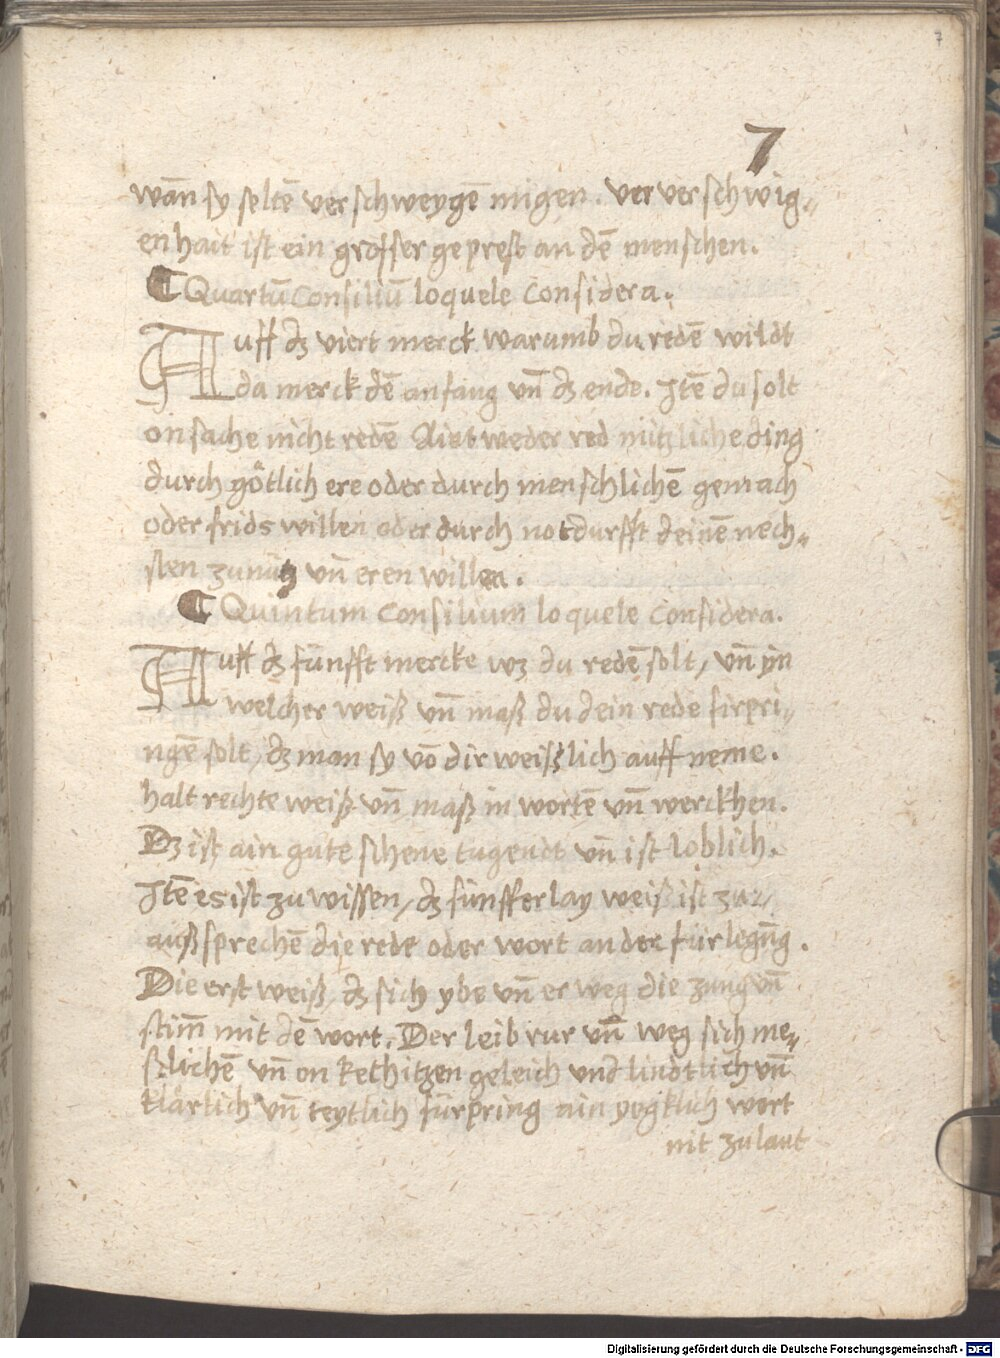 7
7
wan̄ sy seltē verschweygē migen. ver verschwig„
en hait ist ein grosser geprest an dē menschen.
¶ Quartū Consiliū loquele Considera.
Auff dz viert merck warumb du redē wildt
da merck dē anfang vn̄ dz ende. Itē du solt
on sache nicht redē Aintweder red nützliche ding
durch götlich ere oder durch menschlichē gemach
oder frids willen oder durch notdurfft deinē nech„
sten zu nutz vn̄ eren willen.
¶ Quintum Consilium loquele Considera.
Auff dz fünfft mercke wz du redē solt, vn̄ yn
welcher weiß vn̄ maß du dein rede firpri„
ngē solt, dz man sy vō dir weißlich auff neme.
halt rechte weiß vn̄ maß in wortē vn̄ werckhen.
Dz ist ain gute schene tugendt vn̄ ist loblich.
Itē es ist zu wissen, dz fünfferlay weiß ist zur
außsprechē die rede oder wort an der fürlegūg.
Die erst weiß, dz sich ybe vn̄ er weg die zung vn̄
stim̄ mit dē wort. Der leib rur vn̄ weg sich me„
schlichē vn̄ on kechitzen geleich und lindtlich vn̄
klårlich vn̄ teytlich fürpring ain yegklich wort
nit zu laut
Digitalisierung gefördert durch die Deutsche Forschungsgemeinschaft - DFG